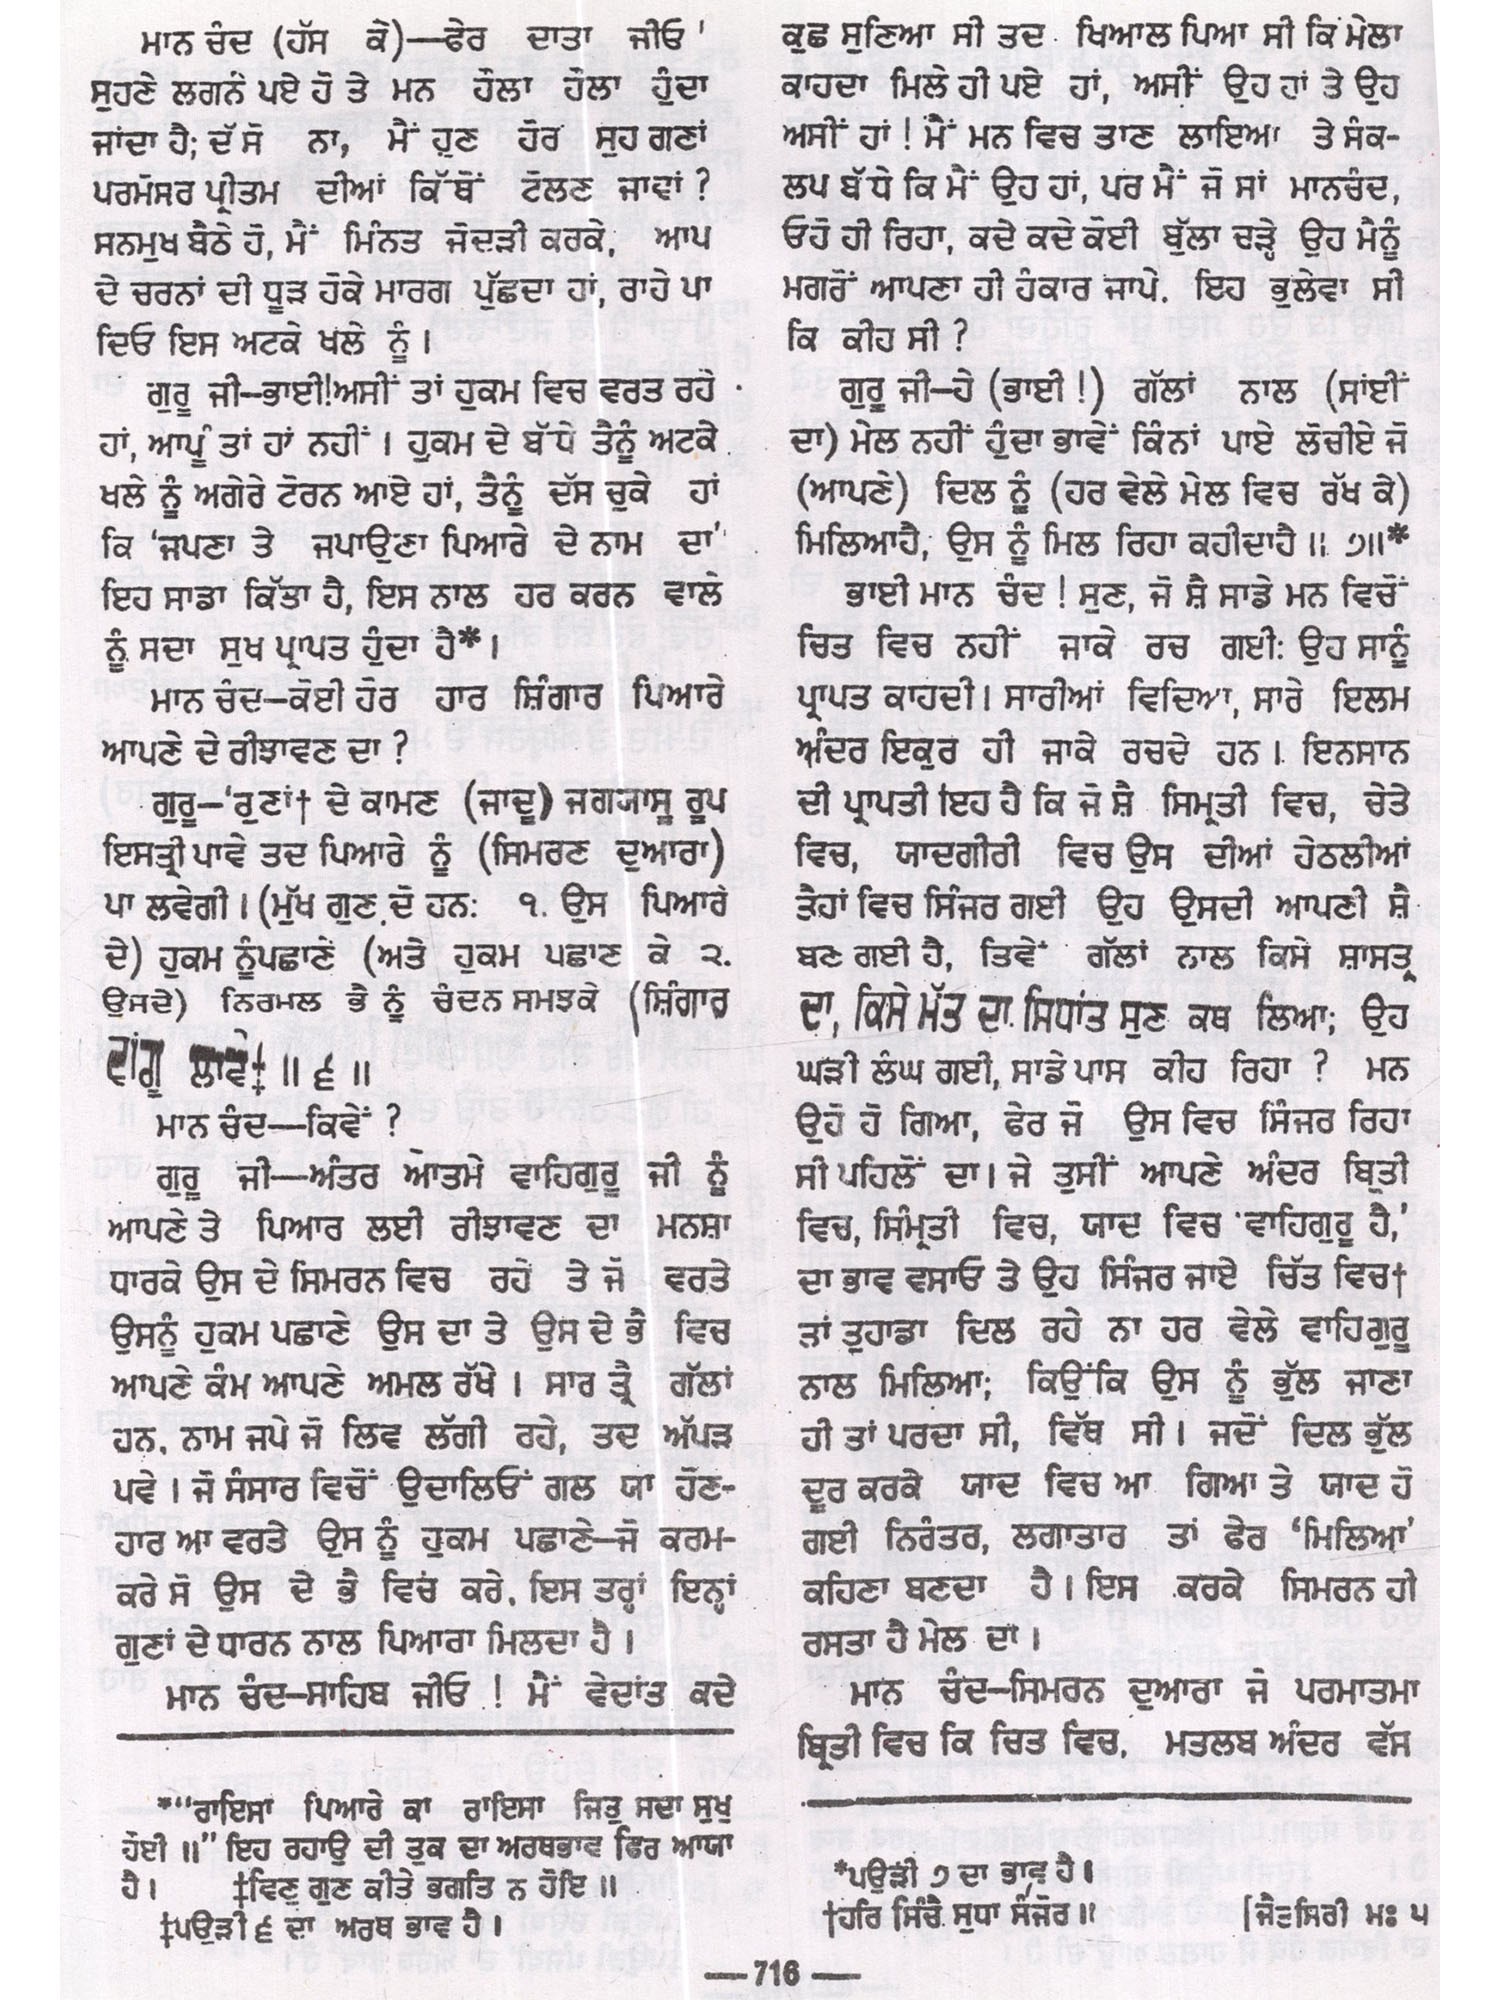 ਮਾਨ ਚੰਦ (ਹੱਸ ਕੇ)—ਫੇਰ ਦਾਤਾ ਜੀਓ '
ਸੁਹਣੇ ਲਗਨੇ ਪਏ ਹੋ ਤੇ ਮਨ ਹੌਲਾ ਹੌਲਾ ਹੁੰਦਾ
ਜਾਂਦਾ ਹੈ; ਦੱਸੋ ਨਾ, ਮੈਂ ਹੁਣ ਹੋਰ ਸੁਹਾਗਣਾਂ
ਪਰਮੇਸਰ ਪ੍ਰੀਤਮ ਦੀਆਂ ਕਿੱਥੋਂ ਟੋਲਣ ਜਾਵਾਂ ?
ਸਨਮੁਖ ਬੈਠੇ ਹੋ, ਮੈਂ ਮਿੰਨਤ ਜੋਦੜੀ ਕਰਕੇ, ਆਪ
ਦੇ ਚਰਨਾਂ ਦੀ ਧੂੜ ਹੋਕੇ ਮਾਰਗ ਪੁੱਛਦਾ ਹਾਂ, ਰਾਹੇ ਪਾ
ਦਿਓ ਇਸ ਅਟਕੇ ਖਲੇ ਨੂੰ ।
ਗੁਰੂ ਜੀ—ਭਾਈ!ਅਸੀਂ ਤਾਂ ਹੁਕਮ ਵਿਚ ਵਰਤ ਰਹੇ
ਹਾਂ, ਆਪੂੰ ਤਾਂ ਹਾਂ ਨਹੀਂ । ਹੁਕਮ ਦੇ ਬੱਧੇ ਤੈਨੂੰ ਅਟਕੇ
ਖਲੇ ਨੂੰ ਅਗੇਰੇ ਟੋਰਨ ਆਏ ਹਾਂ, ਤੈਨੂੰ ਦੱਸ ਚੁਕੇ ਹਾਂ
ਕਿ 'ਜਪਣਾ ਤੇ ਜਪਾਉਣਾ ਪਿਆਰੇ ਦੇ ਨਾਮ ਦਾ'
ਇਹ ਸਾਡਾ ਕਿੱਤਾ ਹੈ, ਇਸ ਨਾਲ ਹਰ ਕਰਨ ਵਾਲੇ
ਨੂੰ ਸਦਾ ਸੁਖ ਪ੍ਰਾਪਤ ਹੁੰਦਾ ਹੈ* ।
ਮਾਨ ਚੰਦ—ਕੋਈ ਹੋਰ ਹਾਰ ਸ਼ਿੰਗਾਰ ਪਿਆਰੇ
ਆਪਣੇ ਦੇ ਰੀਝਾਵਣ ਦਾ ?
ਗੁਰੂ—'ਗੁਣਾਂ† ਦੇ ਕਾਮਣ (ਜਾਦੂ) ਜਗਯਾਸੂ ਰੂਪ
ਇਸਤ੍ਰੀ ਪਾਵੇ ਤਦ ਪਿਆਰੇ ਨੂੰ (ਸਿਮਰਣ ਦੁਆਰਾ)
ਪਾ ਲਵੇਗੀ । (ਮੁੱਖ ਗੁਣ ਦੋ ਹਨ: ੧. ਉਸ ਪਿਆਰੇ
ਦੇ) ਹੁਕਮ ਨੂੰਪਛਾਣੇ (ਅਤੇ ਹੁਕਮ ਪਛਾਣ ਕੇ ੨.
ਉਸਦੇ) ਨਿਰਮਲ ਭੈ ਨੂੰ ਚੰਦਨ ਸਮਝਕੇ (ਸ਼ਿੰਗਾਰ
ਵਾਂਗੂ ਲਾਵੇ‡ ॥ ੬ ॥
ਮਾਨ ਚੰਦ—ਕਿਵੇਂ ?
ਗੁਰੂ ਜੀ—ਅੰਤਰ ਆਤਮੇ ਵਾਹਿਗੁਰੂ ਜੀ ਨੂੰ
ਆਪਣੇ ਤੇ ਪਿਆਰ ਲਈ ਰੀਝਾਵਣ ਦਾ ਮਨਸ਼ਾ
ਧਾਰਕੇ ਉਸ ਦੇ ਸਿਮਰਨ ਵਿਚ ਰਹੇ ਤੇ ਜੋ ਵਰਤੇ
ਉਸਨੂੰ ਹੁਕਮ ਪਛਾਣੇ ਉਸ ਦਾ ਤੇ ਉਸ ਦੇ ਭੈ ਵਿਚ
ਆਪਣੇ ਕੰਮ ਆਪਣੇ ਅਮਲ ਰੱਖੇ । ਸਾਰ ਤ੍ਰੈ ਗੱਲਾਂ
ਹਨ, ਨਾਮ ਜਪੇ ਜੋ ਲਿਵ ਲੱਗੀ ਰਹੇ, ਤਦ ਅੱਪੜ
ਪਵੇ । ਜੋ ਸੰਸਾਰ ਵਿਚੋਂ ਉਦਾਲਿਓਂ ਗਲ ਯਾ ਹੋਣ-
ਹਾਰ ਆ ਵਰਤੇ ਉਸ ਨੂੰ ਹੁਕਮ ਪਛਾਣੇ—ਜੋ ਕਰਮ-
ਕਰੇ ਸੋ ਉਸ ਦੇ ਭੈ ਵਿਚ ਕਰੇ. ਇਸ ਤਰ੍ਹਾਂ ਇਨ੍ਹਾਂ
ਗੁਣਾਂ ਦੇ ਧਾਰਨ ਨਾਲ ਪਿਆਰਾ ਮਿਲਦਾ ਹੈ ।
ਮਾਨ ਚੰਦ—ਸਾਹਿਬ ਜੀਓ ! ਮੈਂ ਵੇਦਾਂਤ ਕਦੇ
*"ਰਾਇਸਾ ਪਿਆਰੇ ਕਾ ਰਾਇਸਾ ਜਿਤੁ ਸਦਾ ਸੁਖੁ
ਹੋਈ ॥" ਇਹ ਰਹਾਉ ਦੀ ਤੁਕ ਦਾ ਅਰਥਭਾਵ ਫਿਰ ਆਯਾ
ਹੈ । ‡ਵਿਣੁ ਗੁਣ ਕੀਤੇ ਭਗਤਿ ਨ ਹੋਇ ॥
‡ਪਉੜੀ ੬ ਦਾ ਅਰਥ ਭਾਵ ਹੈ ।
ਕੁਛ ਸੁਣਿਆ ਸੀ ਤਦ ਖਿਆਲ ਪਿਆ ਸੀ ਕਿ ਮੇਲਾ
ਕਾਹਦਾ ਮਿਲੇ ਹੀ ਪਏ ਹਾਂ, ਅਸੀਂ ਉਹ ਹਾਂ ਤੇ ਉਹ
ਅਸੀਂ ਹਾਂ ! ਮੈਂ ਮਨ ਵਿਚ ਤਾਣ ਲਾਇਆ ਤੇ ਸੰਕ-
ਲਪ ਬੱਧੇ ਕਿ ਮੈਂ ਉਹ ਹਾਂ, ਪਰ ਮੈਂ ਜੋ ਸਾਂ ਮਾਨਚੰਦ,
ਓਹੋ ਹੀ ਰਿਹਾ, ਕਦੇ ਕਦੇ ਕੋਈ ਬੁੱਲਾ ਚੜ੍ਹੇ ਉਹ ਮੈਨੂੰ
ਮਗਰੋਂ ਆਪਣਾ ਹੀ ਹੰਕਾਰ ਜਾਪੇ. ਇਹ ਭੁਲੇਵਾ ਸੀ
ਕਿ ਕੀਹ ਸੀ ?
ਗੁਰੂ ਜੀ—ਹੇ (ਭਾਈ !) ਗੱਲਾਂ ਨਾਲ (ਸਾਂਈਂ
ਦਾ) ਮੇਲ ਨਹੀਂ ਹੁੰਦਾ ਭਾਵੇਂ ਕਿੰਨਾਂ ਪਾਏ ਲੋਚੀਏ ਜੋ
(ਆਪਣੇ) ਦਿਲ ਨੂੰ (ਹਰ ਵੇਲੇ ਮੇਲ ਵਿਚ ਰੱਖ ਕੇ)
ਮਿਲਿਆਹੈ, ਉਸ ਨੂੰ ਮਿਲ ਰਿਹਾ ਕਹੀਦਾਹੈ ॥ ੭॥*
ਭਾਈ ਮਾਨ ਚੰਦ ! ਸੁਣ, ਜੋ ਸ਼ੈ ਸਾਡੇ ਮਨ ਵਿਚੋਂ
ਚਿਤ ਵਿਚ ਨਹੀਂ ਜਾਕੇ ਰਚ ਗਈ: ਉਹ ਸਾਨੂੰ
ਪ੍ਰਾਪਤ ਕਾਹਦੀ । ਸਾਰੀਆਂ ਵਿਦਿਆ, ਸਾਰੇ ਇਲਮ
ਅੰਦਰ ਇਕੁਰ ਹੀ ਜਾਕੇ ਰਚਦੇ ਹਨ । ਇਨਸਾਨ
ਦੀ ਪ੍ਰਾਪਤੀ ਇਹ ਹੈ ਕਿ ਜੋ ਸ਼ੈ ਸਿਮ੍ਰਤੀ ਵਿਚ, ਚੇਤੇ
ਵਿਚ, ਯਾਦਗੀਰੀ ਵਿਚ ਉਸ ਦੀਆਂ ਹੇਠਲੀਆਂ
ਤੈਹਾਂ ਵਿਚ ਸਿੰਜਰ ਗਈ ਉਹ ਉਸਦੀ ਆਪਣੀ ਸ਼ੈ
ਬਣ ਗਈ ਹੈ, ਤਿਵੇਂ ਗੱਲਾਂ ਨਾਲ ਕਿਸੇ ਸ਼ਾਸਤ੍ਰ
ਦਾ, ਕਿਸੇ ਮੱਤ ਦਾ ਸਿਧਾਂਤ ਸੁਣ ਕਥ ਲਿਆ; ਉਹ
ਘੜੀ ਲੰਘ ਗਈ, ਸਾਡੇ ਪਾਸ ਕੀਹ ਰਿਹਾ ? ਮਨ
ਉਹੋ ਹੋ ਗਿਆ, ਫੇਰ ਜੋ ਉਸ ਵਿਚ ਸਿੰਜਰ ਰਿਹਾ
ਸੀ ਪਹਿਲੋਂ ਦਾ । ਜੇ ਤੁਸੀਂ ਆਪਣੇ ਅੰਦਰ ਬ੍ਰਿਤੀ
ਵਿਚ, ਸਿੰਮ੍ਰਤੀ ਵਿਚ, ਯਾਦ ਵਿਚ 'ਵਾਹਿਗੁਰੂ ਹੈ,'
ਦਾ ਭਾਵ ਵਸਾਓ ਤੇ ਉਹ ਸਿੰਜਰ ਜਾਏ ਚਿੱਤ ਵਿਚ†
ਤਾਂ ਤੁਹਾਡਾ ਦਿਲ ਰਹੇ ਨਾ ਹਰ ਵੇਲੇ ਵਾਹਿਗੁਰੂ
ਨਾਲ ਮਿਲਿਆ; ਕਿਉਂਕਿ ਉਸ ਨੂੰ ਭੁੱਲ ਜਾਣਾ
ਹੀ ਤਾਂ ਪਰਦਾ ਸੀ, ਵਿੱਥ ਸੀ । ਜਦੋਂ ਦਿਲ ਭੁੱਲ
ਦੂਰ ਕਰਕੇ ਯਾਦ ਵਿਚ ਆ ਗਿਆ ਤੇ ਯਾਦ ਹੋ
ਗਈ ਨਿਰੰਤਰ, ਲਗਾਤਾਰ ਤਾਂ ਫੇਰ 'ਮਿਲਿਆ'
ਕਹਿਣਾ ਬਣਦਾ ਹੈ । ਇਸ ਕਰਕੇ ਸਿਮਰਨ ਹੀ
ਰਸਤਾ ਹੈ ਮੇਲ ਦਾ ।
ਮਾਨ ਚੰਦ—ਸਿਮਰਨ ਦੁਆਰਾ ਜੋ ਪਰਮਾਤਮਾ
ਬ੍ਰਿਤੀ ਵਿਚ ਕਿ ਚਿਤ ਵਿਚ, ਮਤਲਬ ਅੰਦਰ ਵੱਸ
*ਪਉੜੀ ੭ ਦਾ ਭਾਵ ਹੈ ।
†ਹਰਿ ਸਿੰਚੈ ਸੁਧਾ ਸੰਜੋਰ ॥ [ਜੈਤਸਿਰੀ ਮਃ ੫
—716—